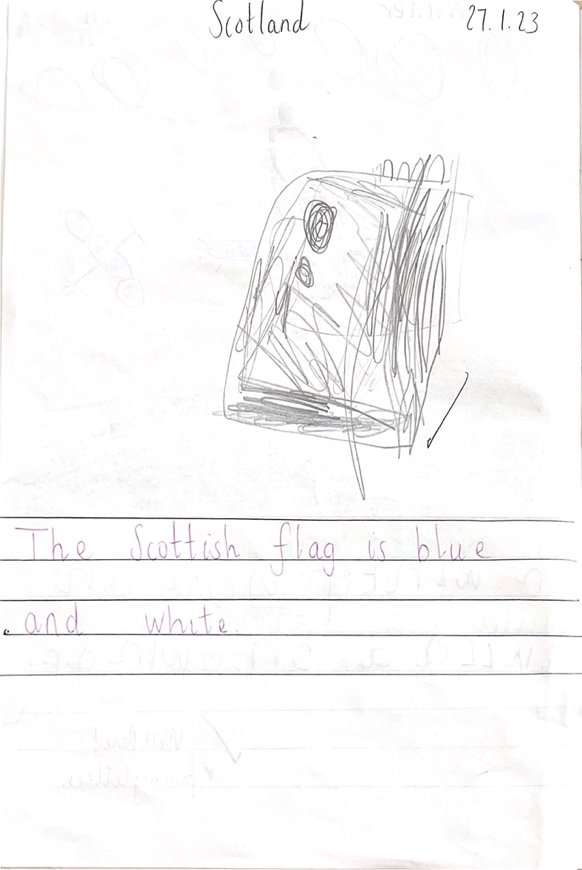 Scotland 27.1.23
The Scottish flag is blue
and white.